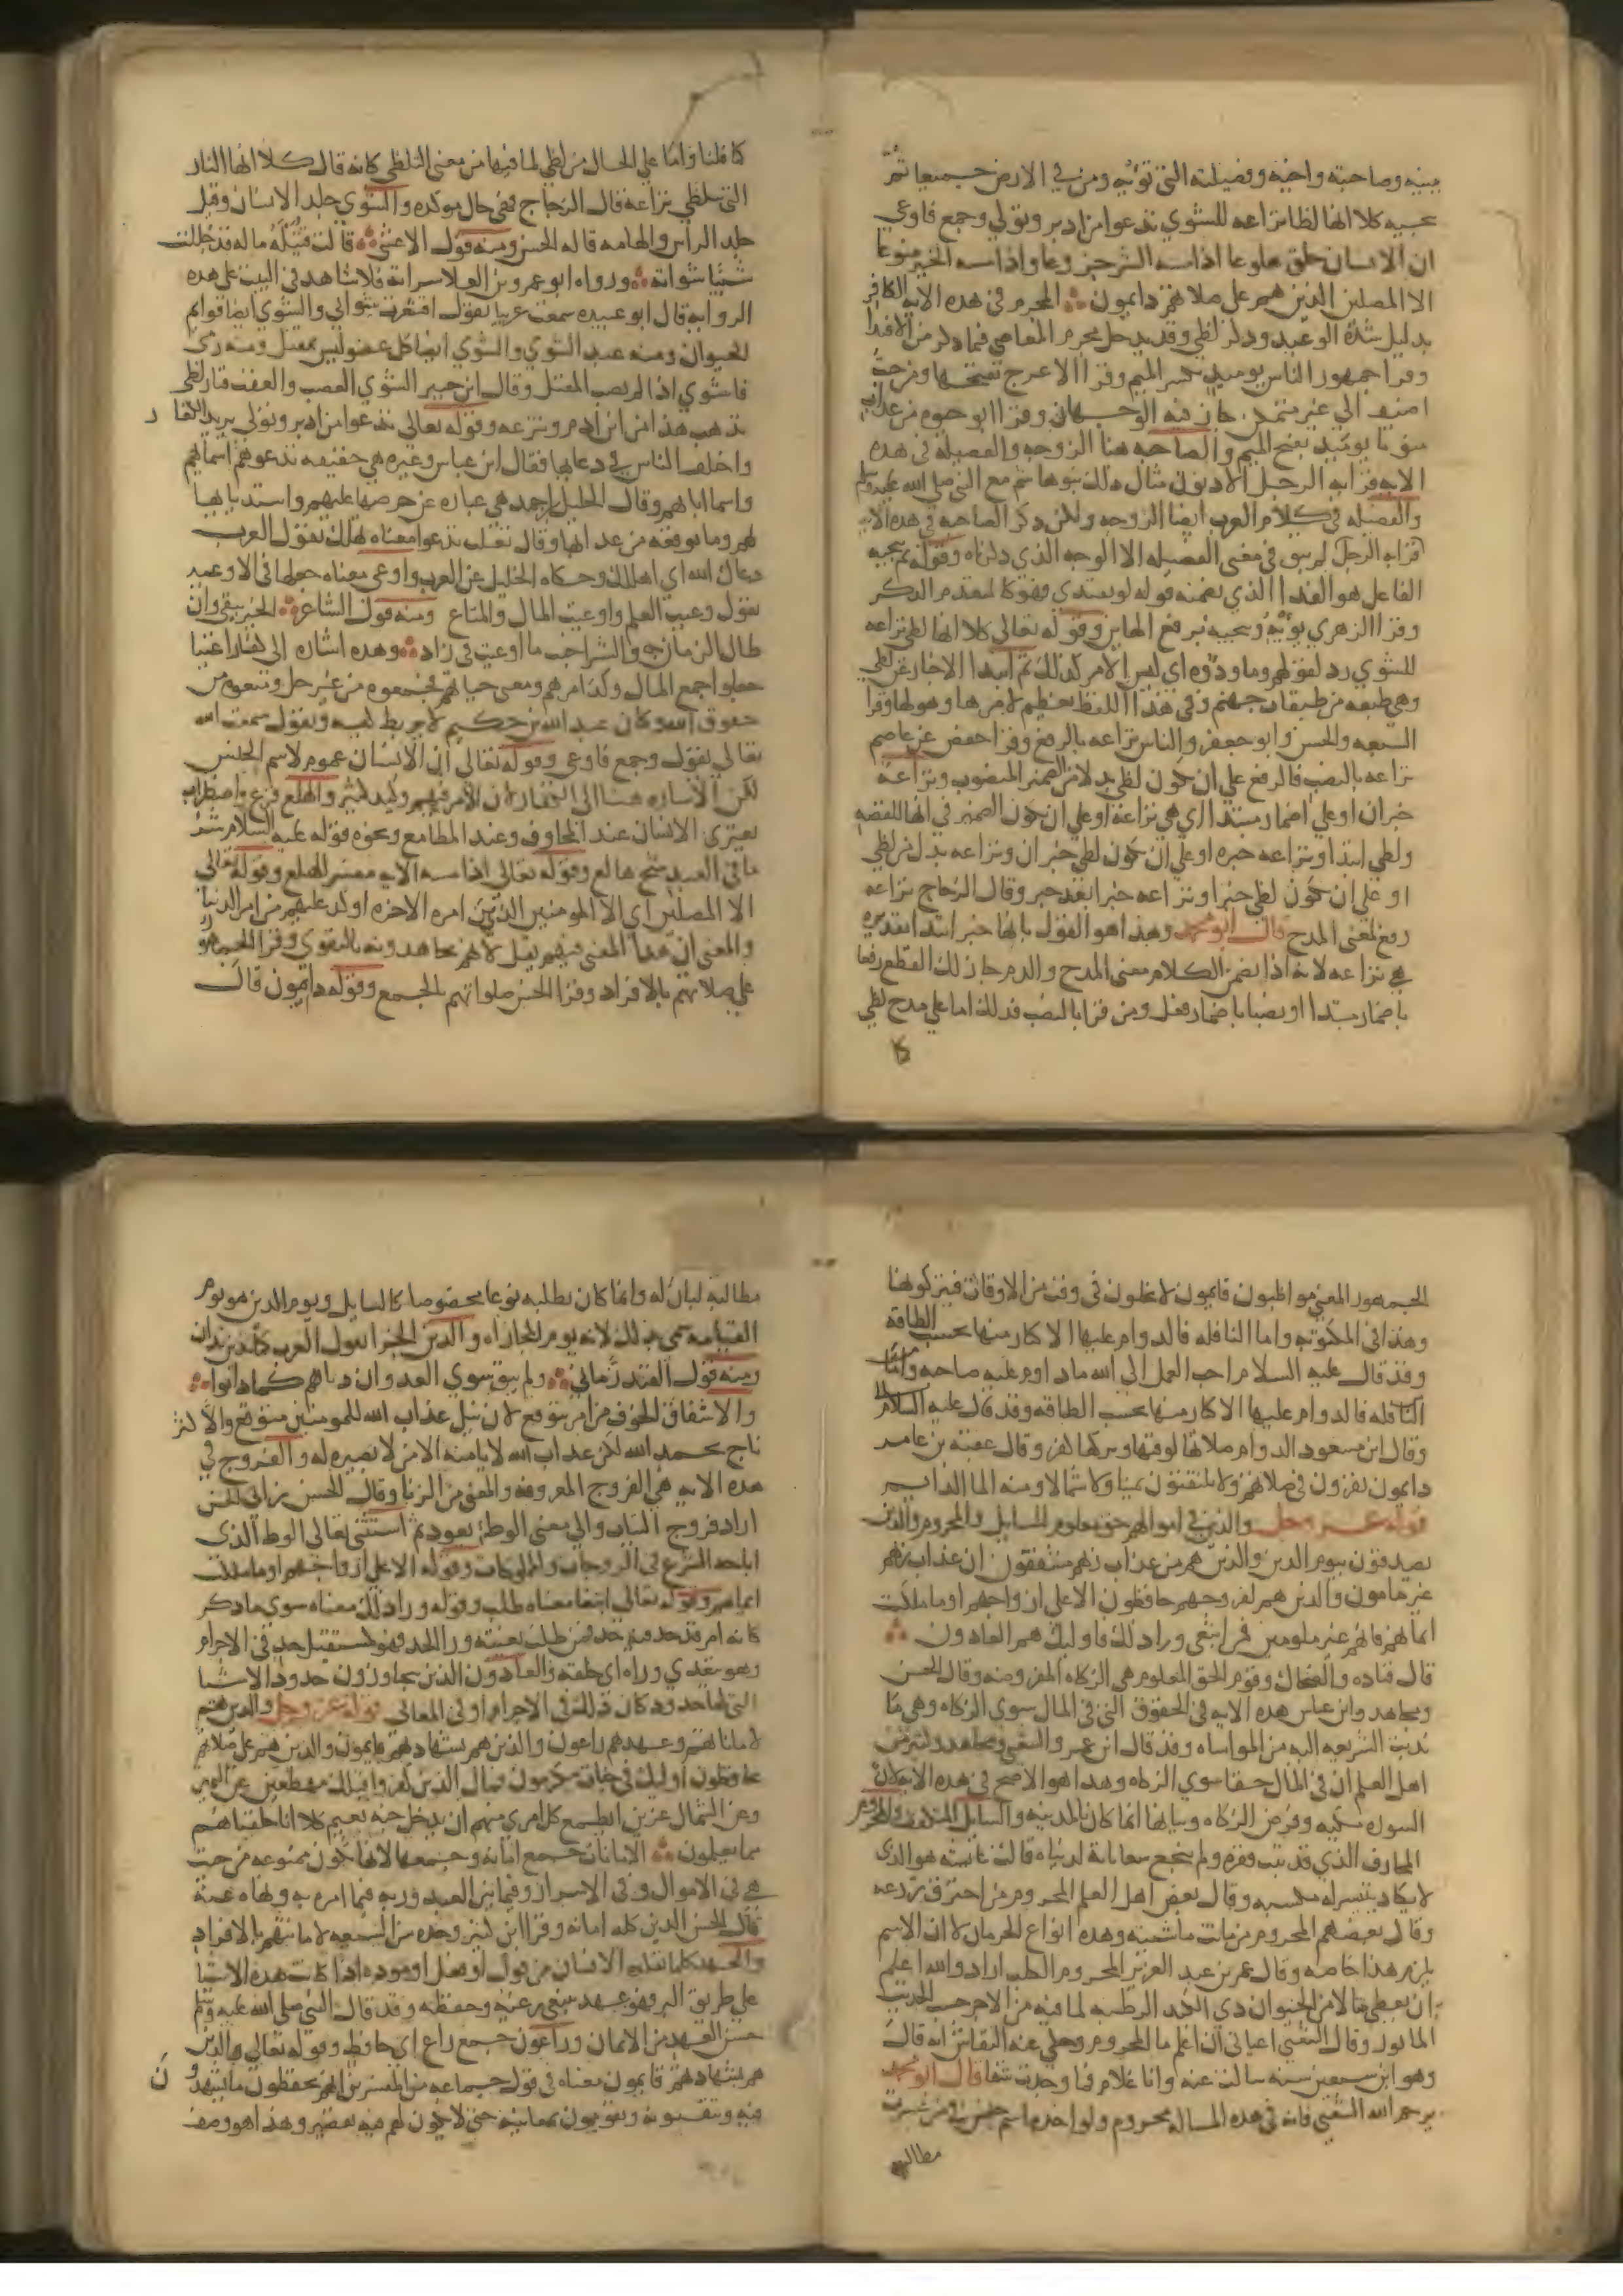 ببنيه وصاحبته واخيه وفصيلته التي تؤيه ومن في الارض جميعا ثم
ينجيه كلا انها لظا نزاعه للشوي تدعوا من ادبر وتولي وجمع فاوعي
ان الانسان خلق هلوعا اذا مسه الشر جزوعا واذا مسه الخير منوعا
الا المصلين الذين هم على صلاتهم دايمون المجرم في هذه الايه الكافر
بدليل شدة الوعيد وذكر لظي وقد يدخل مجرم المعاصي فيما ذكر من الافتدا
وقرا جمهور الناس يوميذ بكسر الميم وقرا الاعرج بفتحها ومن حيث
اضيف الي غير متمكن جاز فيه الوجهان وقرا ابو حيوه من عذاب
يوميذ بفتح الميم والصاحبه هنا الزوجه والفصيله في هذه
الايه قرابه الرجل الادنون مثال ذلك بنوهاشم مع النبي صلي الله عليه وسلم
والفصيله في كلام العرب ايضا الزوجه ولكن ذكر الصاحبه في هذه الايه
قرابه الرجل لم يبق في معني الفصيله الا الوجه الذي ذكرناه وقوله ثم ينجيه
الفاعل هو الفدا الذي تضمنه قوله لو يفتدي فهو كالمتقدم الذكر
وقرا الزهري تؤيه وينجيه برفع الهاين وقوله تعالي كلا انها لظي نزاعه
للشوي رد لقولهم وما ودوه اي ليس الامر كذلك ثم ابتدا الاخبار عن لظي
وهي طبقه من طبقات جهنم وفي هذا اللفظ تعظيم لامرها وهولها وقرا
السبعه والحسن وابو جعفر والناس نزاعه بالرفع وقرا حفص عن عاصم
نزاعه بالنصب فالرفع علي ان تكون لظي بدلا من الضمير المنصوب ونزاعه
خبر ان او علي اضمار مبتدا اي هي نزاعه او علي ان يكون الضمير في انها للقصه
ولظي ابتدا ونزاعه خبره او علي ان تكون لظي خبر ان ونزاعه بدل من لظي
او علي ان تكون لظي خبرا ونزاعه خبرا بعد خبر وقال الزجاج نزاعه
رفع لمعني المدح قال ابو محمد وهذا هو القول بانها خبر ابتدا تقديره
هي نزاعه لانه اذا تضمن الكلام معني المدح والذم جاز لك القطع رفعا
باضمار مبتدا او نصبا باضمار فعل ومن قرا بالنصب فذلك اما علي مدح لظي
كما قلنا واما علي الحال من لظي لما فيها من معني التلظي كانه قال كلا انها النار
التي تتلظي نزاعه قال الزجاج فهي حال موكده والشوي جلد الانسان وقيل
جلد الراس والهامه قاله الحسن ومنه قول الاعشي قالت قتيلة ما له قد جللت
شيبا شواته ورواه ابو عمرو بن العلا سراته فلا شاهد في البيت علي هذه
الروايه قال ابو عبيده سمعت عربيا يقول اقشعرت شواتي والشوي ايضا قوايم
الحيوان ومنه عبل الشوي والشوي ايضا كل عضو ليس بمقتل ومنه رمي
فاشوي اذا لم يصب المقتل وقال ابن جبير الشوي العصب والعقب فنار لظي
تذهب هذا من ابن ادم وتنزعه وقوله تعالي تدعوا من ادبر وتولي يريد الكفار
واختلف الناس في دعايها فقال ابن عباس وغيره هي حقيقه تدعوهم باسمايهم
واسما ابايهم وقال الخليل بن احمد هي عباره عن حرصها عليهم واستدنايها
لهم وما توقعه من عذابها وقال ثعلب تدعوا معناه تهلك تقول العرب
دعاك الله اي اهلكك وحكاه الخليل عن العرب واوعي معناه جعلها في الاوعيه
تقول وعيت العلم واوعيت المال والمتاع ومنه قول الشاعر الخير يبقي وان
طال الزمان به والشر اخبث ما اوعيت في زاد وهذه اشاره الي كفار اغنيا
جعلوا جمع المال وكد امرهم ومعني حياتهم فجمعوه من غير حل ومنعوه من
حقوق الله وكان عبد الله بن حكيم لا يربط كيسه ويقول سمعت الله
تعالي يقول وجمع فاوعي وقوله تعالي ان الانسان عموم لاسم الجنس
لكن الاشاره هنا الي الكفار لان الامر فيهم وكيد كثير والهلع فزع واضطراب
يعتري الانسان عند المخاوف وعند المطامع ونحوه قوله عليه السلام شر
ما في العبد شح هالع وقوله تعالي اذا مسه الايه مفسر للهلع وقوله تعالي
الا المصلين اي الا المومنين الذين امر الاخره اوكد عليهم من امر الدنيا
والمعني ان هذا المعني فيهم يقل لانهم يجاهدونه بالتقوي وقرا الجمهور
علي صلاتهم بالافراد وقرا الحسن صلواتهم بالجمع وقوله دايمون قال
الجمهور المعني مواظبون قايمون لا يملون في وقت من الاوقات فيتركونها
وهذا في المكتوبه واما النافله فالدوام عليها الاكثار منها بحسب الطاقه
وقد قال عليه السلام احب العمل الي الله ما داوم عليه صاحبه واما
النافله فالدوام عليها الاكثار منها بحسب الطاقه وقد قال عليه السلام
وقال ابن مسعود الدوام صلاتها لوقتها وتركها كفر وقال عقبه بن عامر
دايمون يقرون في صلاتهم ولا يلتفتون يمينا ولا شمالا ومنه الما الدايم
قوله عز وجل والذين في اموالهم حق معلوم للسايل والمحروم والذين
يصدقون بيوم الدين والذين هم من عذاب ربهم مشفقون ان عذاب ربهم
غير مامون والذين هم لفروجهم حافظون الا علي ازواجهم او ما ملكت
ايمانهم فانهم غير ملومين فمن ابتغي ورا ذلك فاوليك هم العادون
قال قتاده والضحاك وقوم الحق المعلوم هي الزكاه المفروضه وقال الحسن
ومجاهد وابن عباس هذه الايه في الحقوق التي في المال سوي الزكاه وهي ما
ندبت الشريعه اليه من المواساه وقد قال ابن عمر والشعبي ومجاهد وكثير من
اهل العلم ان في المال حقا سوي الزكاه وهذا هو الاصح في هذه الايه لان
السوره مكيه وفرض الزكاه وبيانها انما كان بالمدينه والسايل المتكفف والمحروم
المحارف الذي قد ثبت فقره ولم ينجح سعاياته لدنياه قالت عايشه هو الذي
لا يكاد يتيسر له مكسبه وقال بعض اهل العلم المحروم من احترق زرعه
وقال بعضهم المحروم من ماتت ماشيته وهذه انواع الحرمان لا ان الاسم
يلزم هذا خاصه وقال عمر بن عبد العزيز المحروم الكلب اراد والله اعلم
ان يعطي مثالا من الحيوان ذي الكبد الرطبه لما فيه من الاجر حسب الحديث
الماثور وقال الشعبي اعياني ان اعلم ما المحروم وحكي عنه النقاش انه قال
وهو ابن سبعين سنه سالت عنه وانا غلام فما وجدت شفا قال ابو محمد
يرحم الله الشعبي فانه في هذه المساله محروم ولو اخذه اسم جنس فيمن عسرت
مطالبه
مطالبه لبان له وانما كان يطلبه نوعا مخصوصا كالسايل ويوم الدين هو يوم
القيامه سمي بذلك لانه يوم المجازاه والدين الجزا تقول العرب كما تدين تدان
ومنه قول الفند الزماني ولم يبق سوي العدوان دناهم كما دانوا
والاشفاق الخوف من امر يتوقع لان نيل عذاب الله للمومنين متوقع والاكثر
ناج بحمد الله لكن عذاب الله لا يامنه الا من لا بصيره له والفروج في
هذه الايه هي الفروج المعروفه والمعني من الزنا وقال الحسن بن ابي الحسن
اراد فروج الثياب والي معني الوطي يعود ثم استثني تعالي الوطا الذي
اباحه الشرع في الزوجات والمملوكات وقوله الا علي ازواجهم او ما ملكت
ايمانهم وقوله تعالي ابتغا معناه طلب وقوله ورا ذلك معناه سوي ما ذكر
كانه امر قد حد فيه حد فمن طلب بغيته ورا الحد فهو كمستقبل حد في الاجرام
وهو يتعدي وراه اي خلفه والعادون الذين يتجاوزون حدود الاشيا
التي لها حدود كان ذلك في الاجرام او في المعاني قوله عز وجل والذين هم
لاماناتهم وعهدهم راعون والذين هم بشهادتهم قايمون والذين هم علي صلاتهم
يحافظون اوليك في جنات مكرمون فمال الذين كفروا قبلك مهطعين عن اليمين
وعن الشمال عزين ايطمع كل امري منهم ان يدخل جنه نعيم كلا انا خلقناهم
مما يعلمون الامانات جمع امانه وجمعها لانها تكون متنوعه من حيث
هي في الاموال وفي الاسرار وفيما بين العبد وربه فيما امره به ونهاه عنه
قال الحسن الدين كله امانه وقرا ابن كثير وحده من السبعه لامانتهم بالافراد
والعهد كلما تقلده الانسان من قول او فعل او موده اذا كانت هذه الاشيا
علي طريق البر فهو عهد ينبغي رعيه وحفظه وقد قال النبي صلي الله عليه وسلم
حسن العهد من الايمان وراعون جمع راع اي حافظ وقوله تعالي والذين
هم بشهادتهم قايمون معناه في قول جماعه من المفسرين انهم يحفظون ما يشهدون
فيه ويتقنونه ويقومون بمعانيه حتي لا يكون لهم فيه تقصير وهذا هو وصف